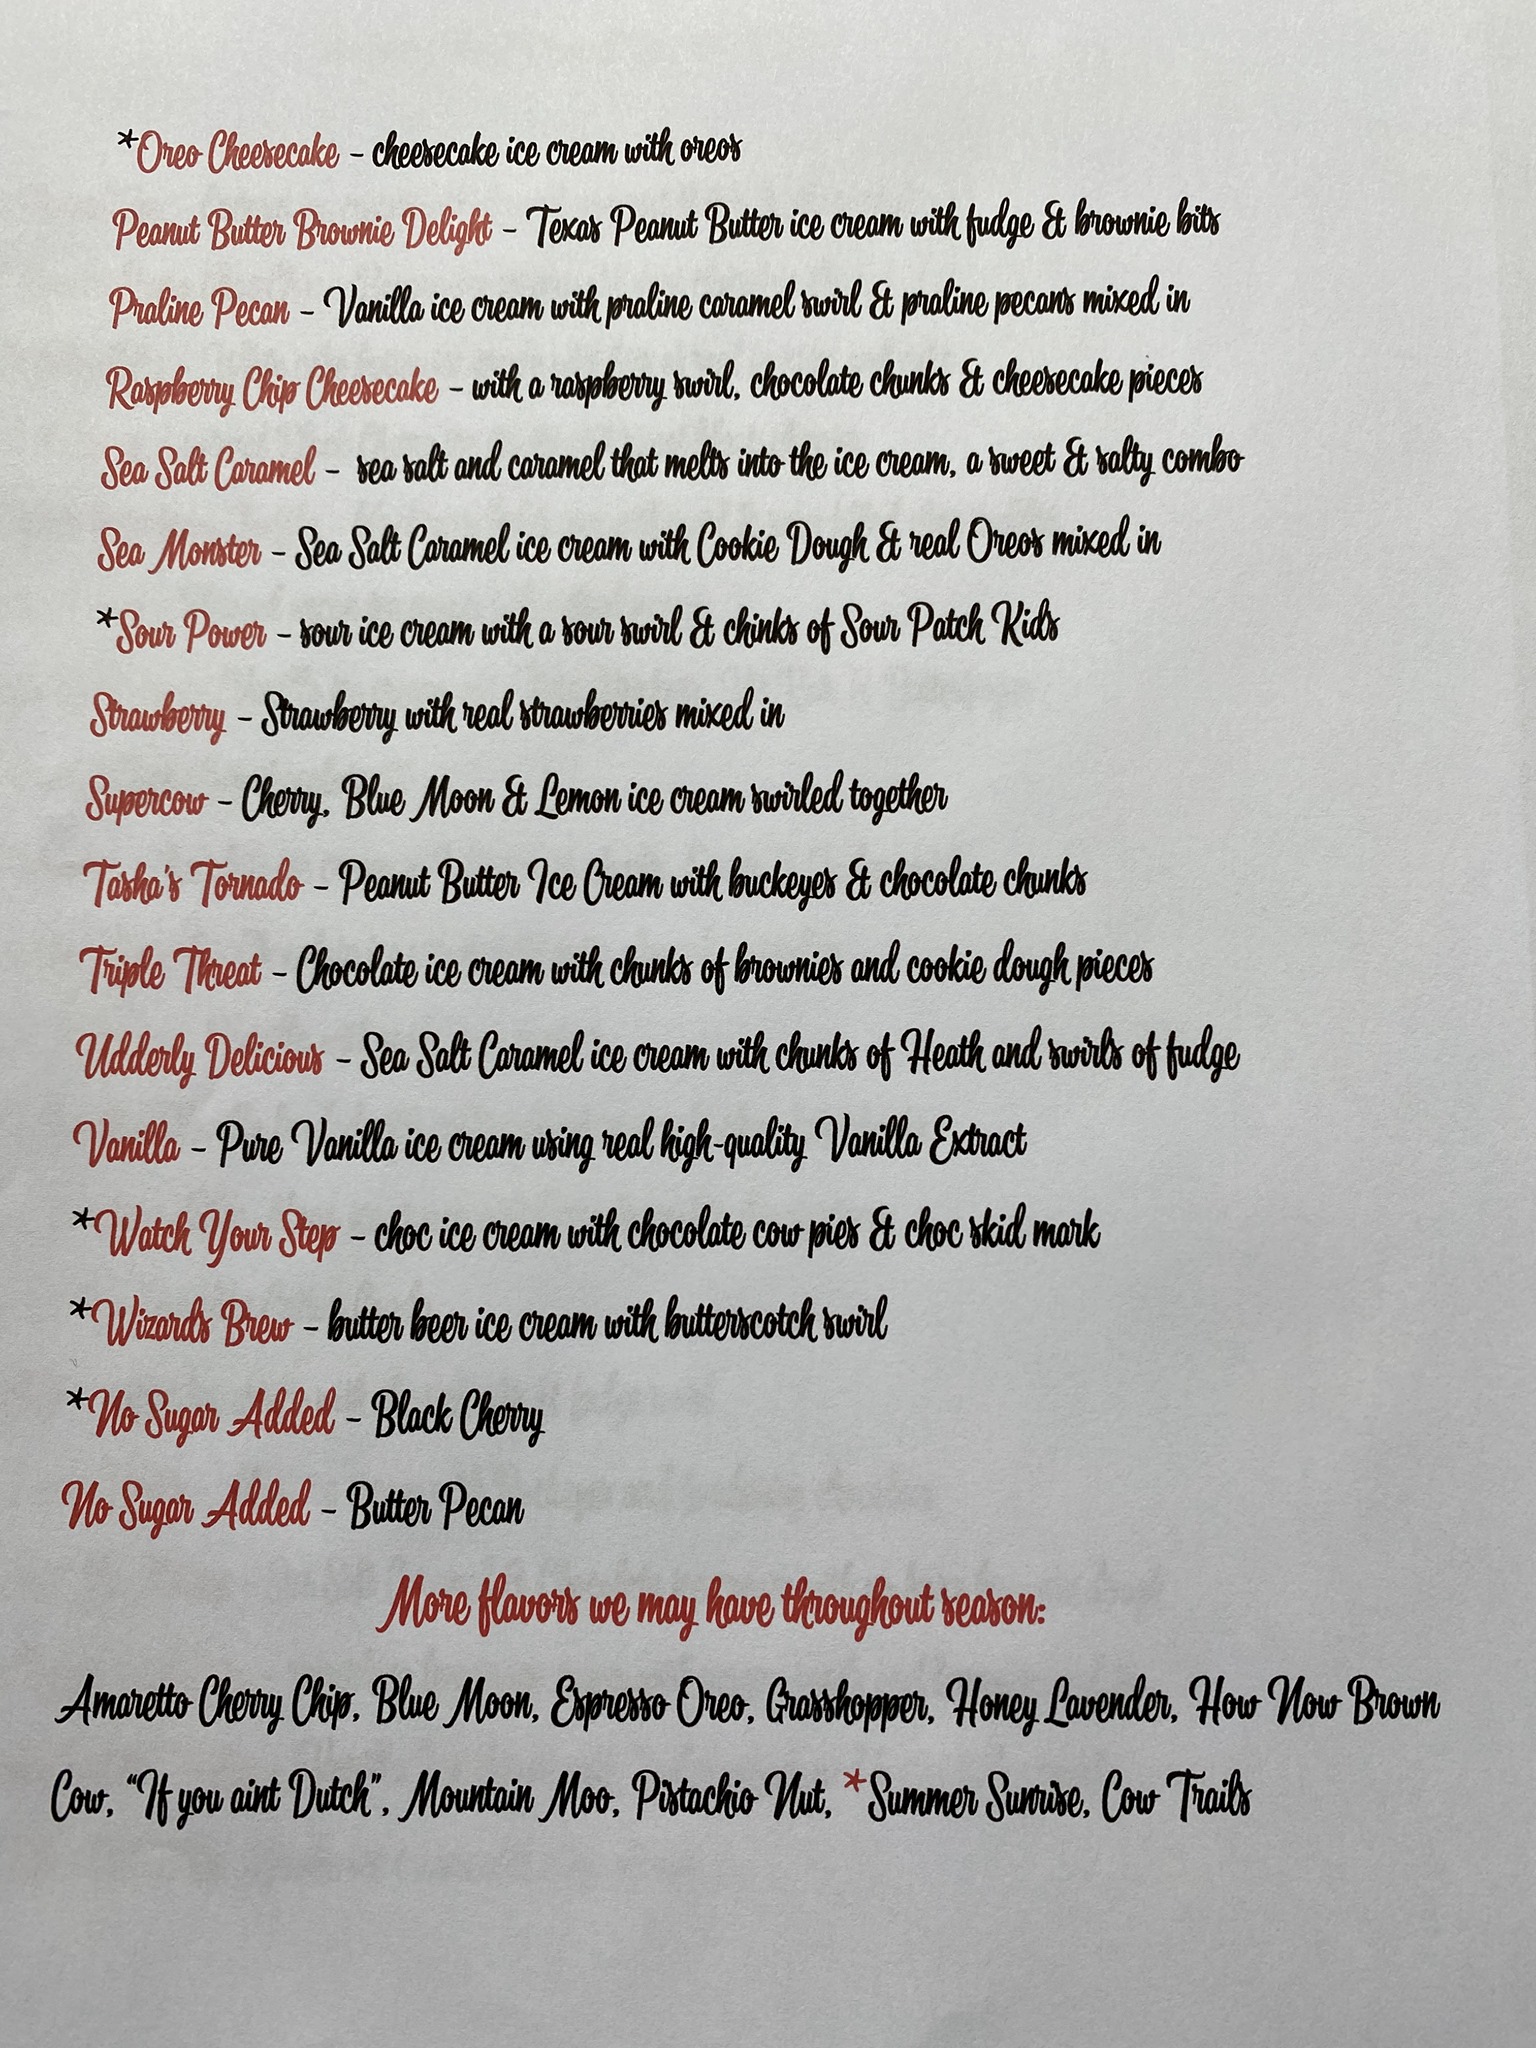 *Oreo Cheesecake - cheesecake ice cream with oreos
Peanut Butter Brownie Delight - Texas Peanut Butter ice cream with fudge & brownie bits
Praline Pecan - Vanilla ice cream with praline caramel swirl & praline pecans mixed in
Raspberry Chip Cheesecake - with a raspberry swirl, chocolate chunks & cheesecake pieces
Sea Salt Caramel - sea salt and caramel that melts into the ice cream, a sweet & salty combo
Sea Monster - Sea Salt Caramel ice cream with Cookie Dough & real Oreos mixed in
*Sour Power - sour ice cream with a sour swirl & chinks of Sour Patch Kids
Strawberry - Strawberry with real strawberries mixed in
Supercow - Cherry, Blue Moon & Lemon ice cream swirled together
Tasha's Tornado - Peanut Butter Ice Cream with buckeyes & chocolate chunks
Triple Threat - Chocolate ice cream with chunks of brownies and cookie dough pieces
Udderly Delicious - Sea Salt Caramel ice cream with chunks of Heath and swirls of fudge
Vanilla - Pure Vanilla ice cream using real high-quality Vanilla Extract
*Watch Your Step - choc ice cream with chocolate cow pies & choc skid mark
*Wizards Brew - butter beer ice cream with butterscotch swirl
*No Sugar Added - Black Cherry
No Sugar Added - Butter Pecan
More flavors we may have throughout season:
Amaretto Cherry Chip, Blue Moon, Espresso Oreo, Grasshopper, Honey Lavender, How Now Brown
Cow, "If you aint Dutch", Mountain Moo, Pistachio Nut, *Summer Sunrise, Cow Trails